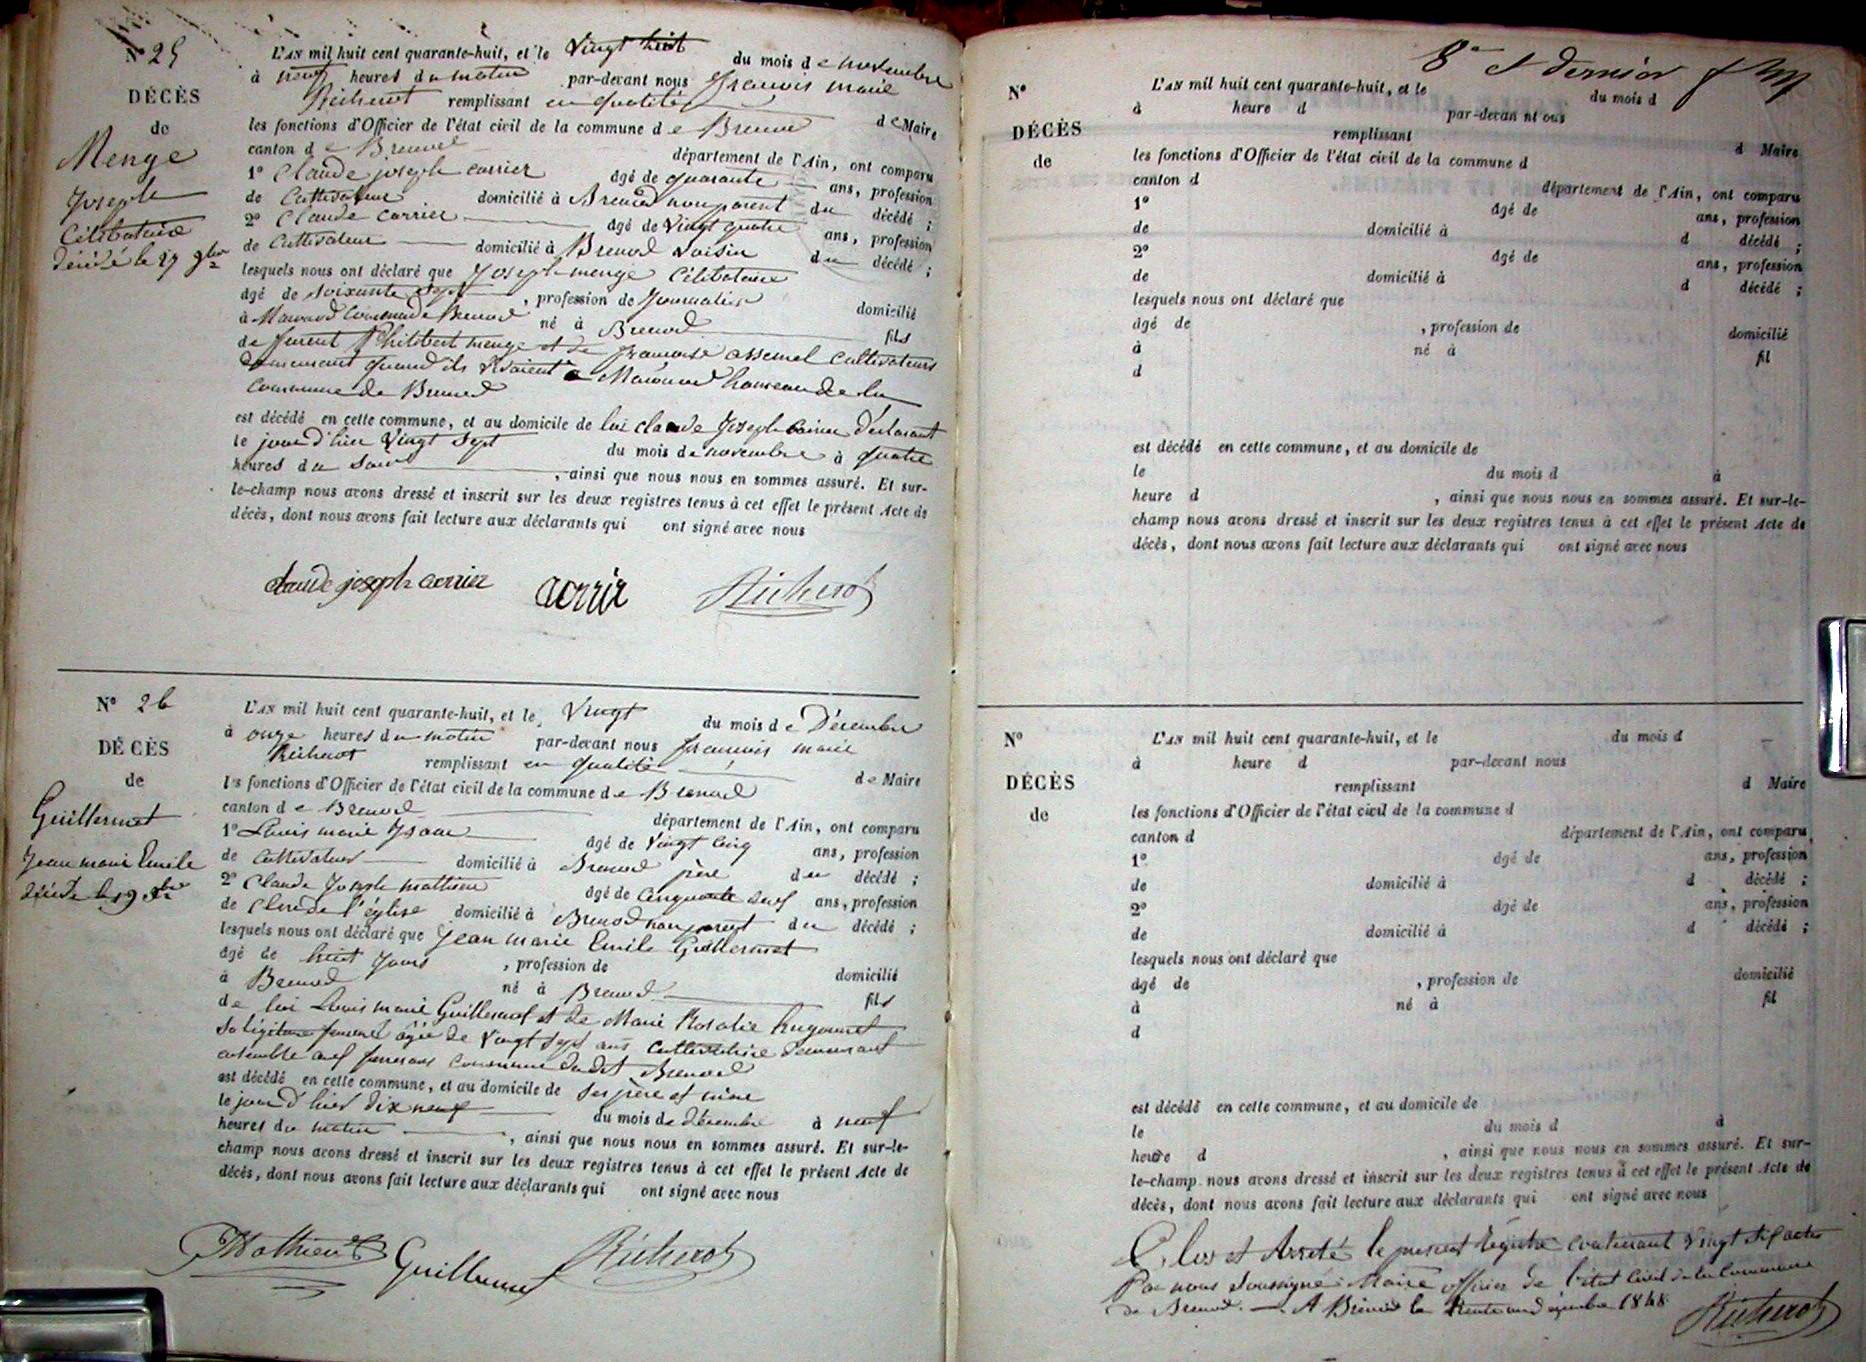 N° 25
DÉCÈS
de
Menge
Joseph
Célibataire
décédé le 27 9bre
L'AN mil huit cent quarante-huit, et le Vingt huit du mois de novembre
à neuf heures du matin par-devant nous François marie
Richerot remplissant en qualité de Maire
les fonctions d'Officier de l'état civil de la commune de Brenod
canton de Brenod département de l'Ain, ont comparu
1° Claude joseph carrier âgé de quarante ans, profession
de Cultivateur domicilié à Brenod non parent du décédé ;
2° Claude carrier âgé de Vingt quatre ans, profession
de Cultivateur domicilié à Brenod Voisin du décédé ;
lesquels nous ont déclaré que Joseph menge Célibataire
âgé de soixante sept , profession de Journalier domicilié
à Commune de Brenod né à Brenod fils
de furent Philibert menge et de françoise assemel cultivateurs
demeurant quand ils Vivaient à hameau de la
Commune de Brenod
est décédé en cette commune, et au domicile de lui claude Joseph carrier déclarant
le jour d'hier Vingt Sept du mois de novembre à quatre
heures du Soir , ainsi que nous nous en sommes assuré. Et sur-
le-champ nous avons dressé et inscrit sur les deux registres tenus à cet effet le présent Acte de
décès, dont nous avons fait lecture aux déclarants qui ont signé avec nous
claude joseph carrier carrir Richerot
N° 26
DÉCÈS
de
Guillermet
Jean marie Emile
décédé le 19 Xbre
L'AN mil huit cent quarante-huit, et le Vingt du mois de Décembre
à onze heures du matin par-devant nous François marie
Richerot remplissant en qualité de Maire
les fonctions d'Officier de l'état civil de la commune de Brenod
canton de Brenod département de l'Ain, ont comparu
1° Louis marie âgé de Vingt Cinq ans, profession
de Cultivateur domicilié à Brenod père du décédé ;
2° Claude Joseph mathieu âgé de Cinquante ans, profession
de Clerc de l'église domicilié à Brenod non parent du décédé ;
lesquels nous ont déclaré que Jean marie Emile Guillermet
âgé de huit Jours , profession de domicilié
à Brenod né à Brenod fils
de lui Louis marie Guillermet et de Marie Rosalie hugonnet
Sa légitime femme âgée de Vingt Sept ans Cultivatrice demeurant
ensemble commune dudit Brenod
est décédé en cette commune, et au domicile de Ses père et mère
le jour d'hier dix neuf du mois de décembre à neuf
heures du matin , ainsi que nous nous en sommes assuré. Et sur-le-
champ nous avons dressé et inscrit sur les deux registres tenus à cet effet le présent Acte de
décès, dont nous avons fait lecture aux déclarants qui ont signé avec nous
Mathieu Guillermet Richerot
8e et dernier
N°
DÉCÈS
de
L'AN mil huit cent quarante-huit, et le du mois d
à heure d par-devan nt ous
remplissant d Maire
les fonctions d'Officier de l'état civil de la commune d
canton d département de l'Ain, ont comparu
1° âgé de ans, profession
de domicilié à d décédé ;
2° âgé de ans, profession
de domicilié à d décédé ;
lesquels nous ont déclaré que
âgé de , profession de domicilié
à né à fil
d
est décédé en cette commune, et au domicile de
le du mois d à
heure d , ainsi que nous nous en sommes assuré. Et sur-le-
champ nous avons dressé et inscrit sur les deux registres tenus à cet effet le présent Acte de
décès, dont nous avons fait lecture aux déclarants qui ont signé avec nous
N°
DÉCÈS
de
L'AN mil huit cent quarante-huit, et le du mois d
à heure d par-devant nous
remplissant d Maire
les fonctions d'Officier de l'état civil de la commune d
canton d département de l'Ain, ont comparu
1° âgé de ans, profession
de domicilié à d décédé ;
2° âgé de ans, profession
de domicilié à d décédé ;
lesquels nous ont déclaré que
âgé de , profession de domicilié
à né à fil
d
est décédé en cette commune, et au domicile de
le du mois d à
heure d , ainsi que nous nous en sommes assuré. Et sur-
le-champ nous avons dressé et inscrit sur les deux registres tenus à cet effet le présent Acte de
décès, dont nous avons fait lecture aux déclarants qui ont signé avec nous
Clos et Arrêté le présent Régistre contenant Vingt Six actes
Par nous Soussigné Maire officier de l'état Civil de la Commune
de Brenod. A Brenod le trente un décembre 1848
Richerot